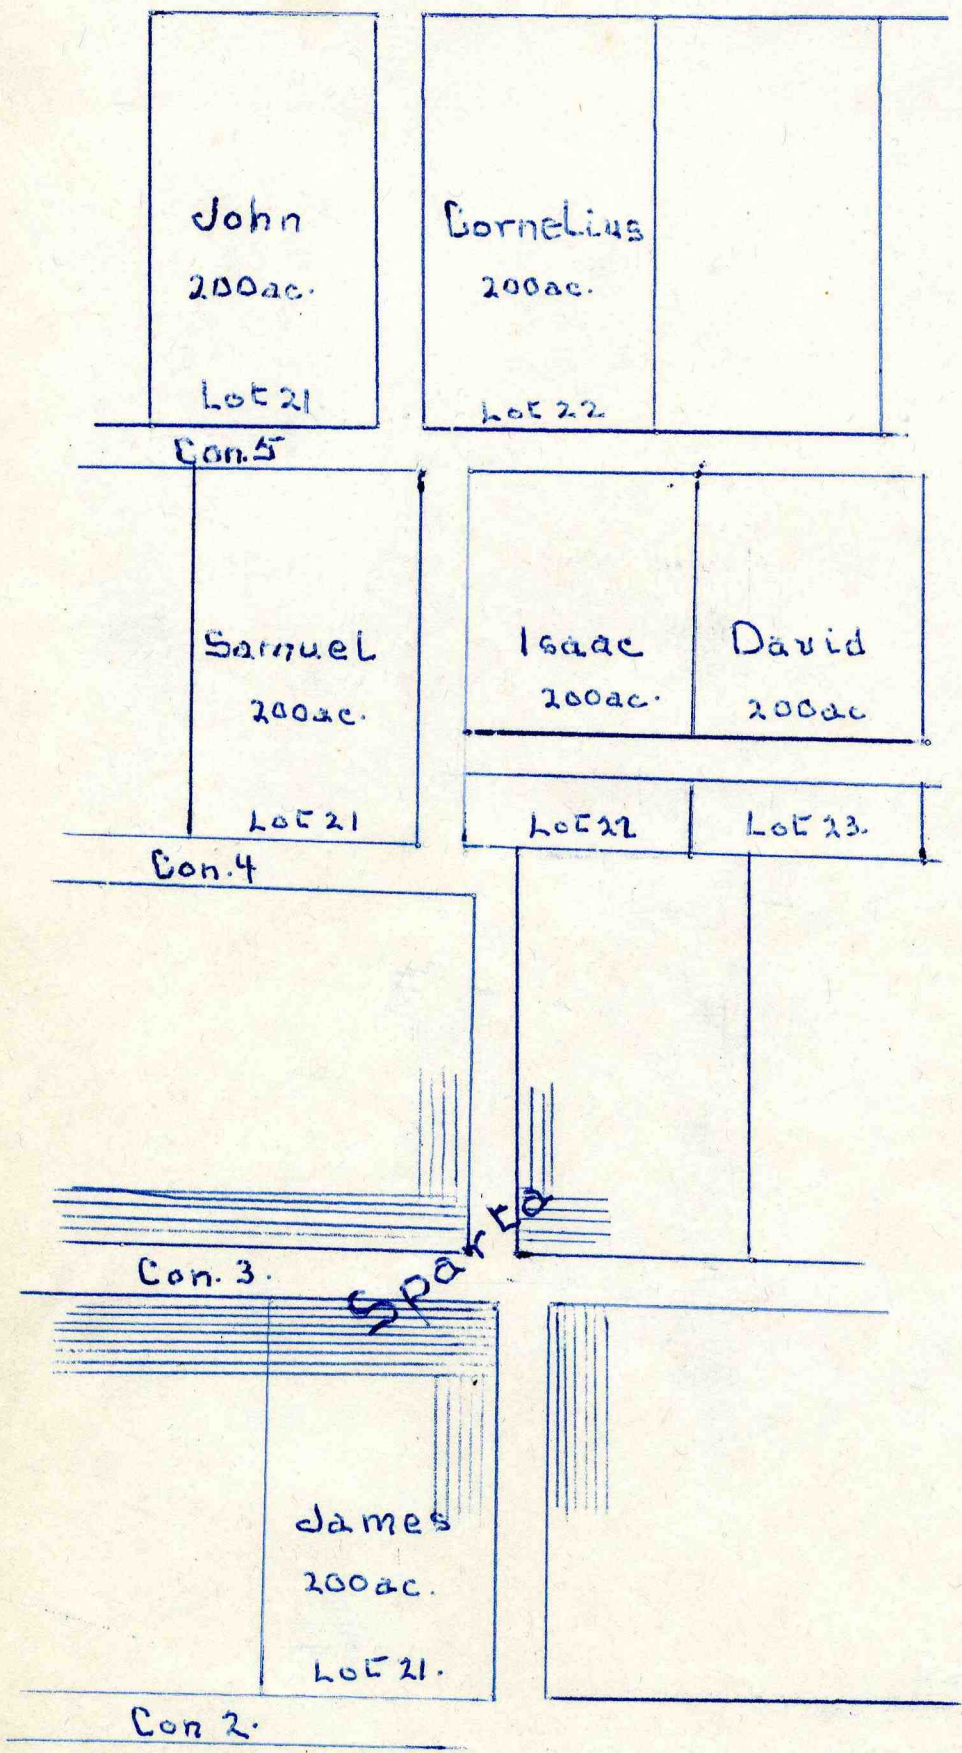 John
200ac.
Lot 21
Cornelius
200ac.
Lot 22
Con. 5
Samuel
200ac.
Lot 21
Isaac
200ac.
David
200ac
Lot 22
Lot 23.
Con. 4
Sparta
Con. 3.
James
200ac.
Lot 21.
Con 2.